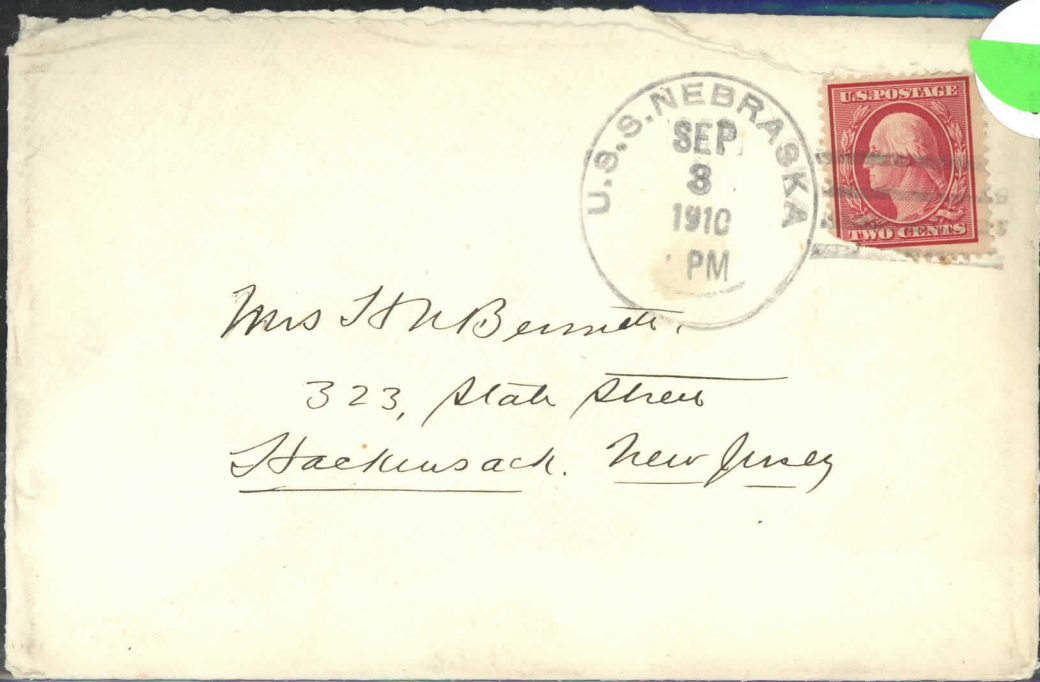 U.S.S. NEBRASKA
SEP
8
1910
PM
U.S. POSTAGE
TWO CENTS
Mrs H N Bennett.
323, State Street
Hackensack. New Jersey